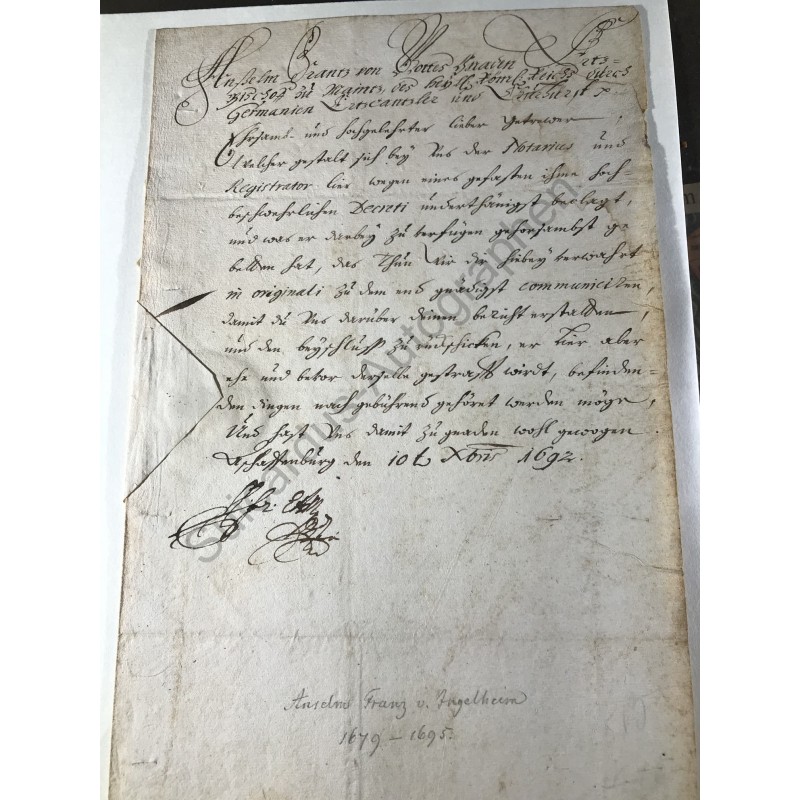 Anselm Frantz von Gottes Gnaden Ertz=
Bischof zu Maintz, des heyl. Röm. Reichs durch
Germanien Ertzcantzler und Churfürst
Ehrsamb- und hochgelehrter lieber Getrewer,
Welcher gestalt sich bey Uns der Notarius und
Registrator hier wegen eines gefasten ihme hoch-
beschwehrlichen Decreti underthänigst beclagt,
und was er darbey zu verfügen gehorsambst ge
betten hat, das thun Wir dir hiebey verwahrt
in originali zu dem end gnädigst communiciren,
damit du Uns darüber deinen bericht erstatten,
und den beyschluss zuruckschicken, er hier aber
ehe und bevor derselbe gestrafft wirdt, befinden=
den dingen nach gebührend gehöret werden möge,
Und hast Uns damit zu gnaden wohl gewogen.
Aschaffenburg den 10t Xbris 1692.
Anselm Franz v. Ingelheim
1679 - 1695.
Autographen